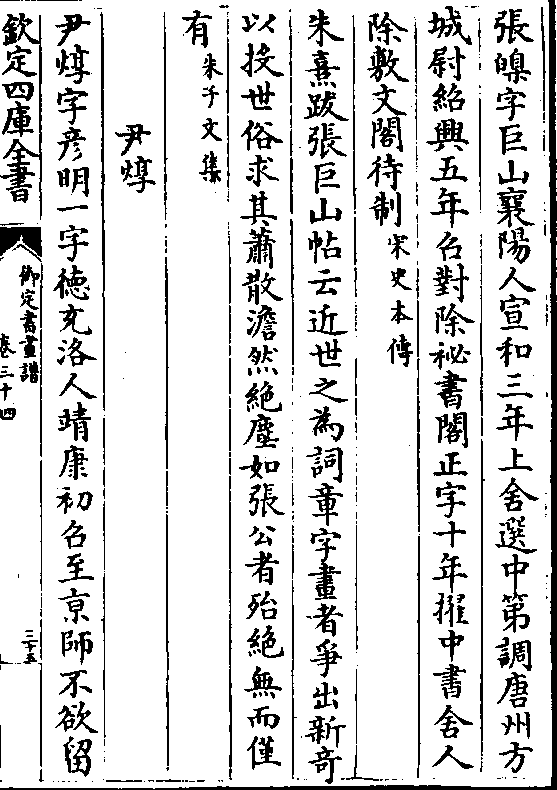 張嵲字巨山襄陽人宣和三年上舍選中第調唐州方
城尉紹興五年召對除祕書閣正字十年擢中書舍人
除敷文閣待制宋史本傳
朱熹跋張巨山帖云近世之為詞章字畫者爭出新奇
以投世俗求其蕭散澹然絶塵如張公者殆絶無而僅
有朱子文集
尹焞
尹焞字彦明一字德充洛人靖康初召至京師不欲留
欽定四庫全書
御定書畫譜
卷三十四
三十五